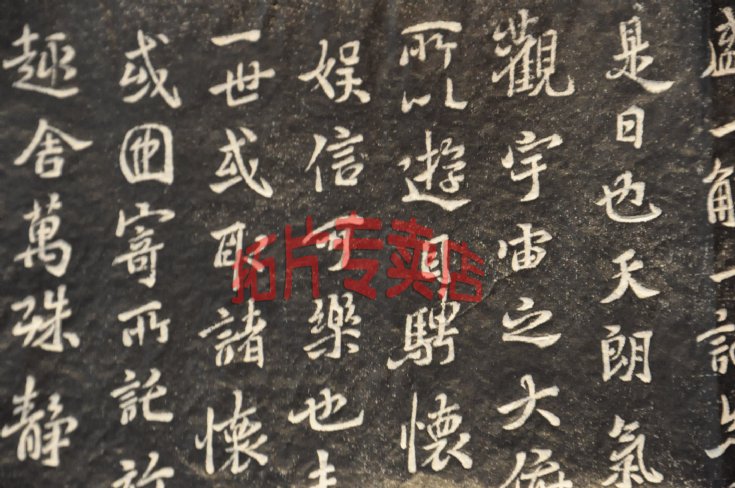 盛一觴一詠
是日也天朗氣
觀宇宙之大俯
所以遊目騁懷
娱信可樂也夫
一世或取諸懷
或因寄所託放
趣舍萬殊靜
拓片专卖店